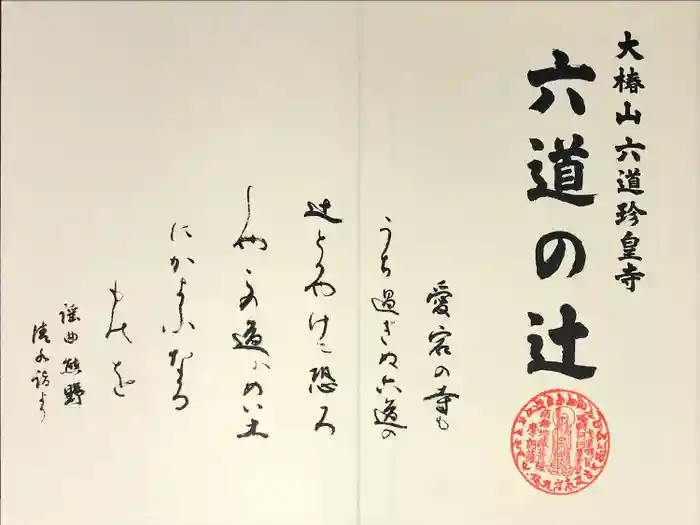 大椿山六道珍皇寺
六道の辻
愛宕の寺も
うち過ぎぬ六道の
辻とかやげに恐ろ
しやこの道はめい土
にかよふなる
ものを
謡曲熊野
清水詣より